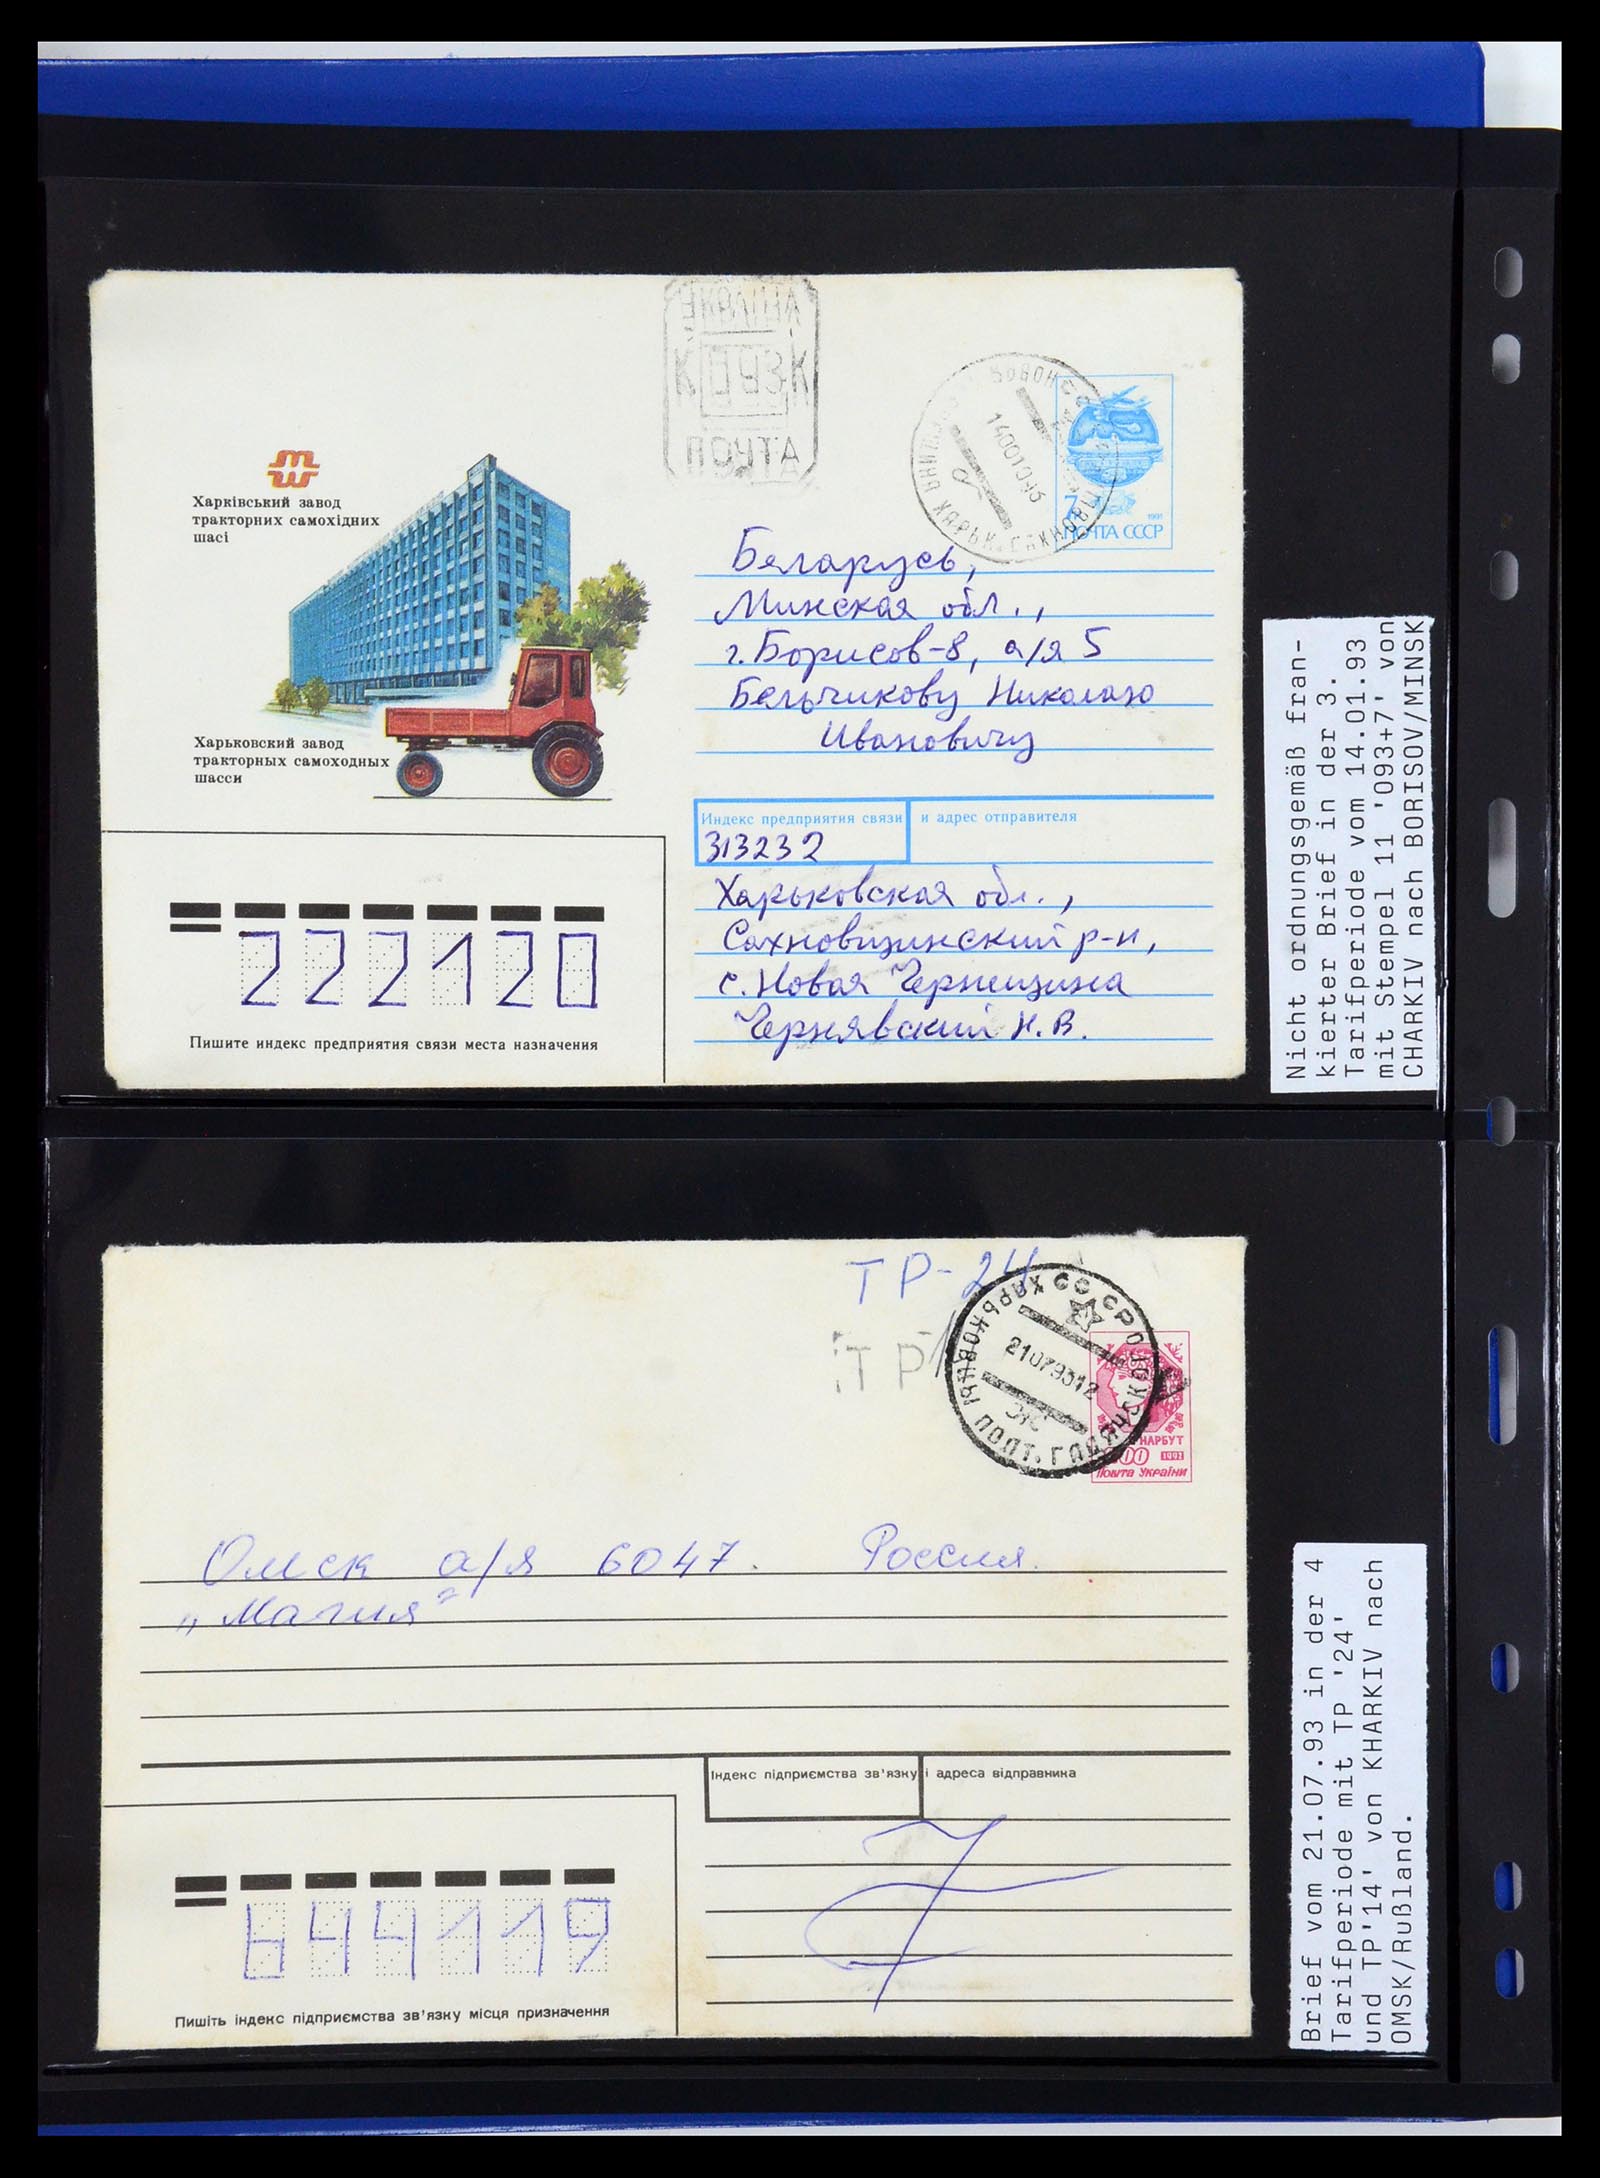 УКРАЇНА
ПОЧТА
7
1991
ПОЧТА СССР
Харківський завод
тракторних самохідних
шасі
Харьковский завод
тракторных самоходных
шасси
Беларусь,
Минская обл.,
г. Борисов-8, а/я 5
Бельчикову Николаю
Ивановичу
Индекс предприятия связи и адрес отправителя
313232
Харьковская обл.,
Сахновщинский р-н,
с. Новая Чернещина
Чернявский Н.В.
222120
Пишите индекс предприятия связи места назначения
Nicht ordnungsgemäß fran-
kierter Brief in der 3.
Tarifperiode vom 14.01.93
mit Stempel 11 '093+7' von
CHARKIV nach BORISOV/MINSK
ТР-24
ТР
21079312
НАРБУТ
1992
Пошта України
Омск а/я 6047. Россия.
„Магия"
Індекс підприємства зв'язку і адреса відправника
644119
Пишіть індекс підприємства зв'язку місця призначення
Brief vom 21.07.93 in der 4
Tarifperiode mit TP '24'
und TP'14' von KHARKIV nach
OMSK/Rußland.